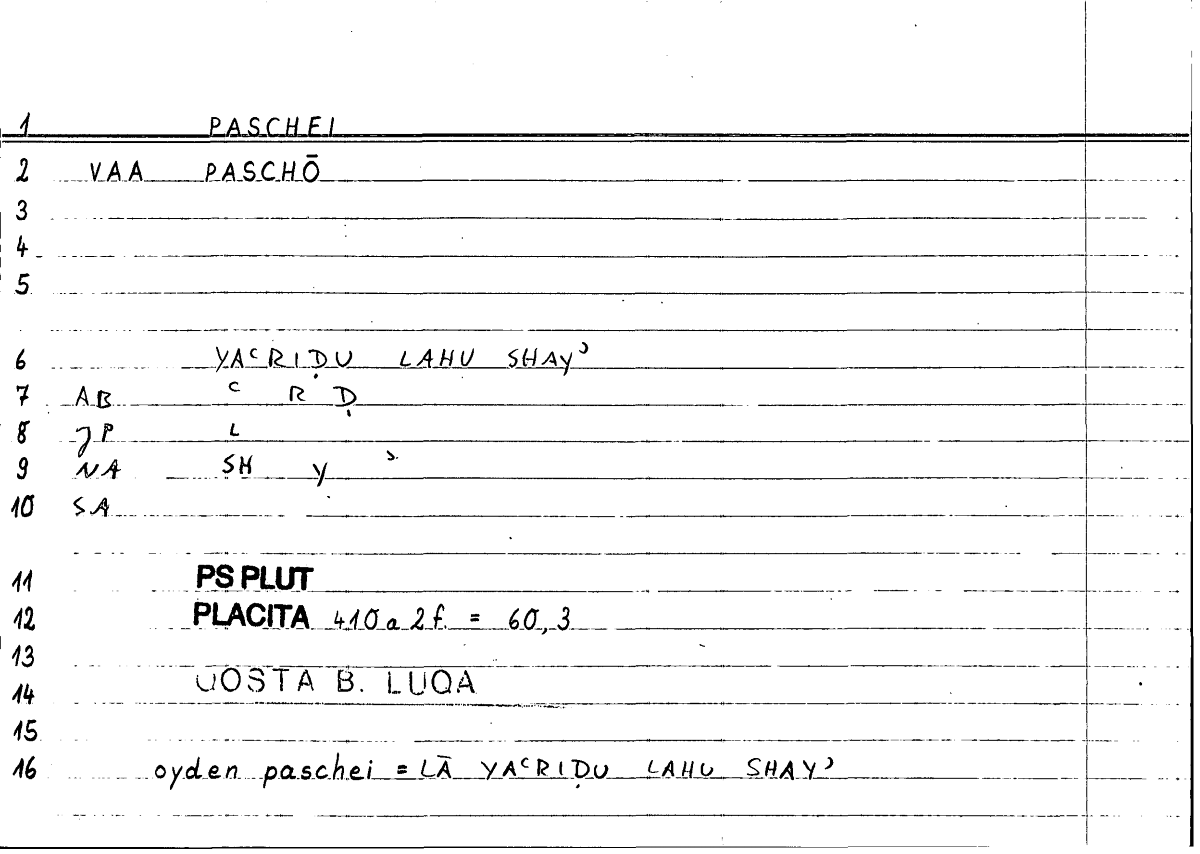 1 PASCHEI
2 VAA PASCHŌ
3
4
5
6 YAʿRIḌU LAHU SHAYʾ
7 AB ʿ R Ḍ
8 JP L
9 NA SH Y ʾ
10 SA
11 PS PLUT
12 PLACITA 410a2f. = 60,3
13
14 QOSTA B. LUQA
15
16 oyden paschei = LĀ YAʿRIḌU LAHU SHAYʾ